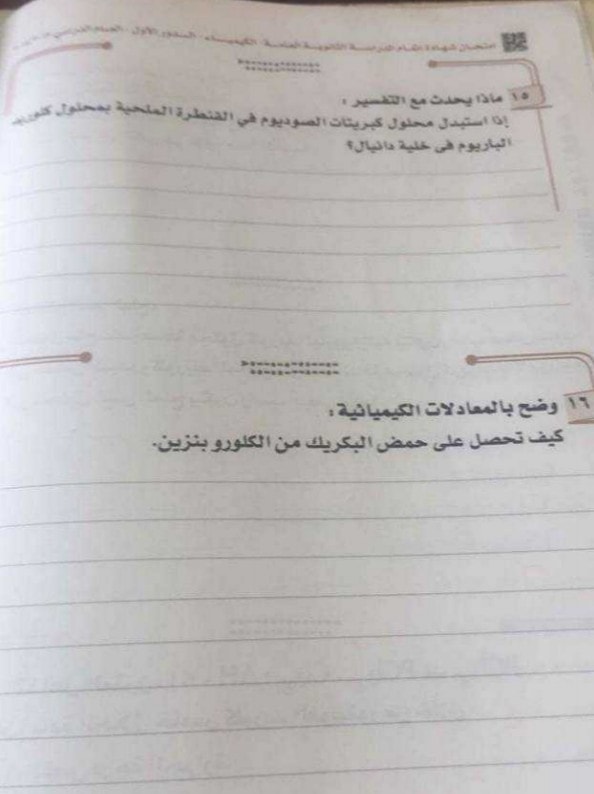 امتحان شهادة إتمام الدراسة الثانوية العامة - الكيمياء - الدور الأول - العام الدراسي
١٥ ماذا يحدث مع التفسير :
إذا استبدل محلول كبريتات الصوديوم في القنطرة الملحية بمحلول كلوريد
الباريوم فى خلية دانيال؟
١٦ وضح بالمعادلات الكيميائية :
كيف تحصل على حمض البكريك من الكلورو بنزين.